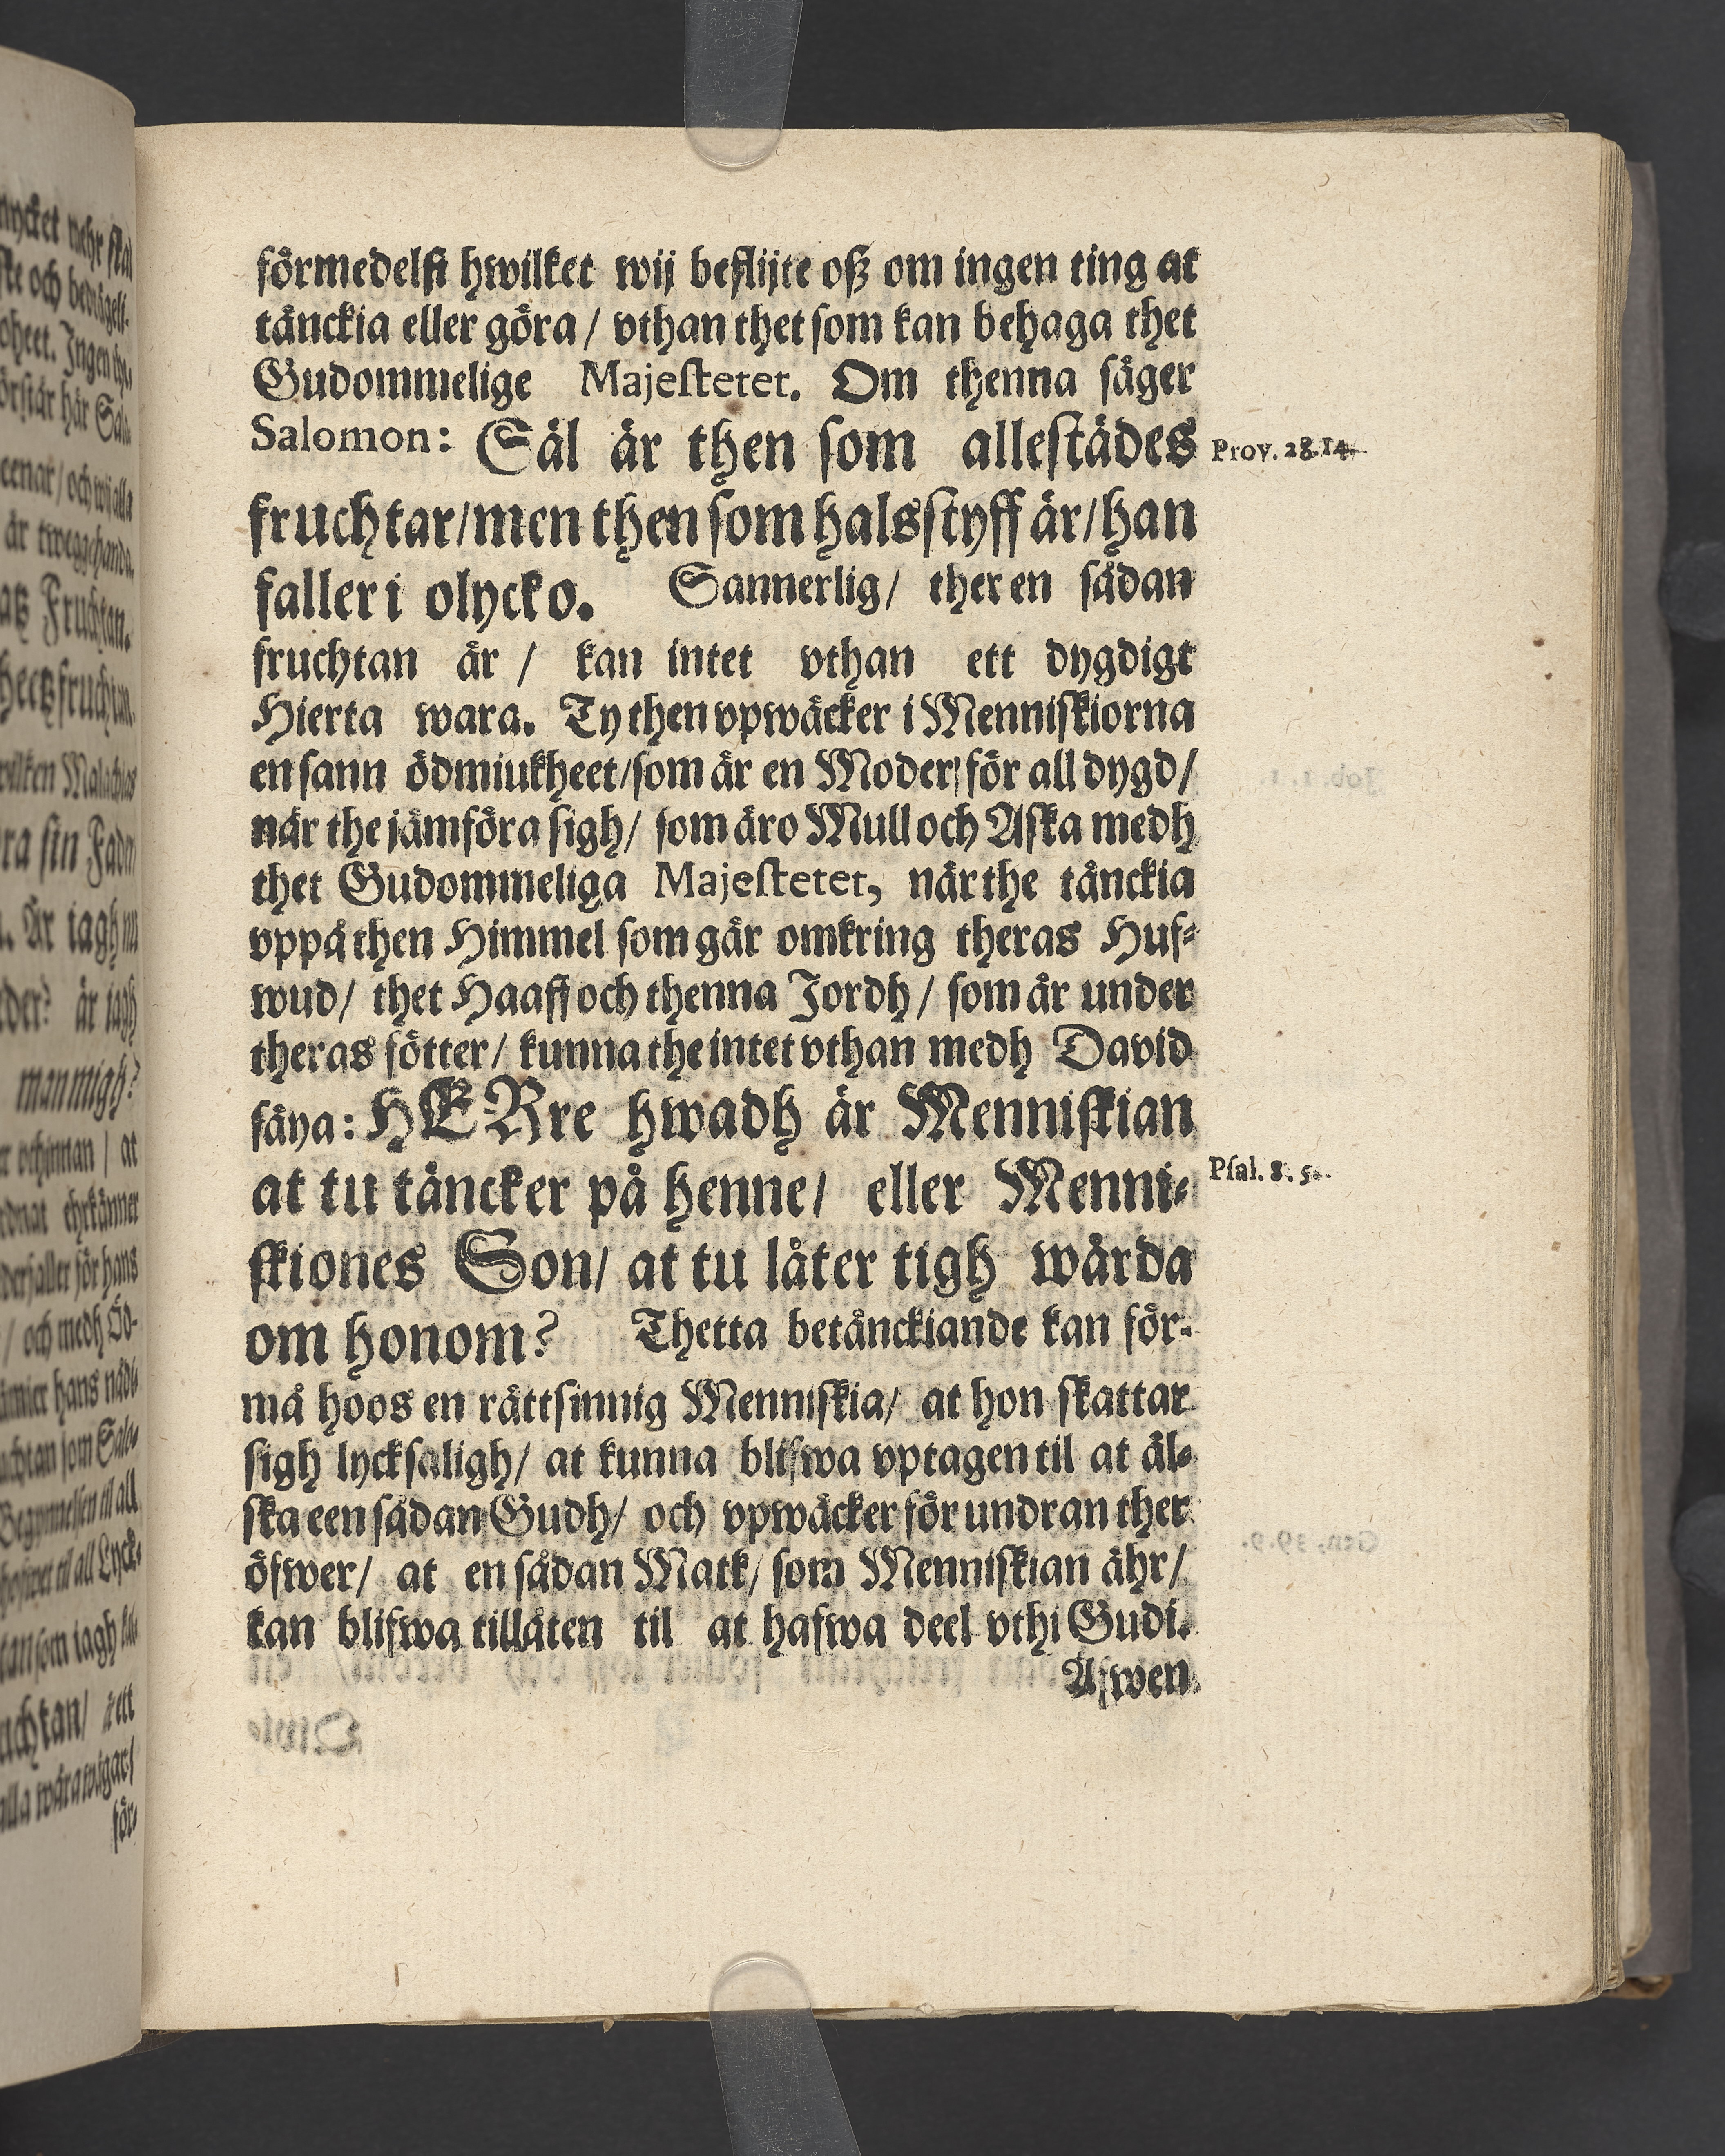 förmedelst hwilket wij beflijte oß om ingen ting at
tänckia eller göra / vthan thet som kan behaga thet
Gudommelige Majestetet. Om thenna säger
Salomon: Säl är then som allestädes
Prov. 28.14.
fruchtar/men then som halsstyff är/han
faller i olycko. Sannerlig/ ther en sådan
fruchtan är / kan intet vthan ett dygdigt
Hierta wara. Ty then vpwäcker i Menniskiorna
en sann ödmiukheet/som är en Moder för all dygd/
när the jämföra sigh/ som äro Mull och Aska medh
thet Gudommeliga Majestetet, när the tänckia
vppå then Himmel som går omkring theras Huf-
wud/ thet Haaff och thenna Jordh/ som är under
theras fötter/ kunna the intet vthan medh David
säya: HERre hwadh är Menniskian
at tu täncker på henne/ eller Menni-
Psal. 8. 5.
skiones Son/ at tu låter tigh wårda
om honom? Thetta betänckiande kan för-
må hoos en rättsinnig Menniskia/ at hon skattar
sigh lycksaligh/ at kunna blifwa vptagen til at äl-
ska een sådan Gudh/ och vpwäcker förundran ther
öfwer/ at en sådan Matk/ som Menniskian ähr/
kan blifwa tillåten til at hafwa deel vthi Gudi.
Äfwen